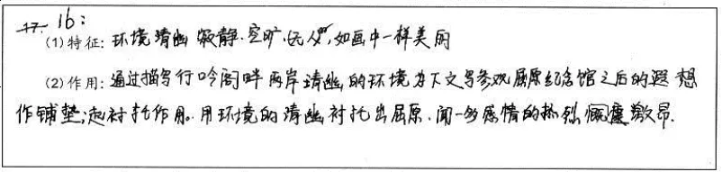 17. 16:
(1)特征: 环境清幽 寂静.空旷.如画中一样美丽
(2)作用: 通过描写行吟阁畔两岸清幽的环境为下文写参观屈原纪念馆之后的遐想
作铺垫;起衬托作用。用环境的清幽衬托出屈原.闻一多感情的热烈激昂.